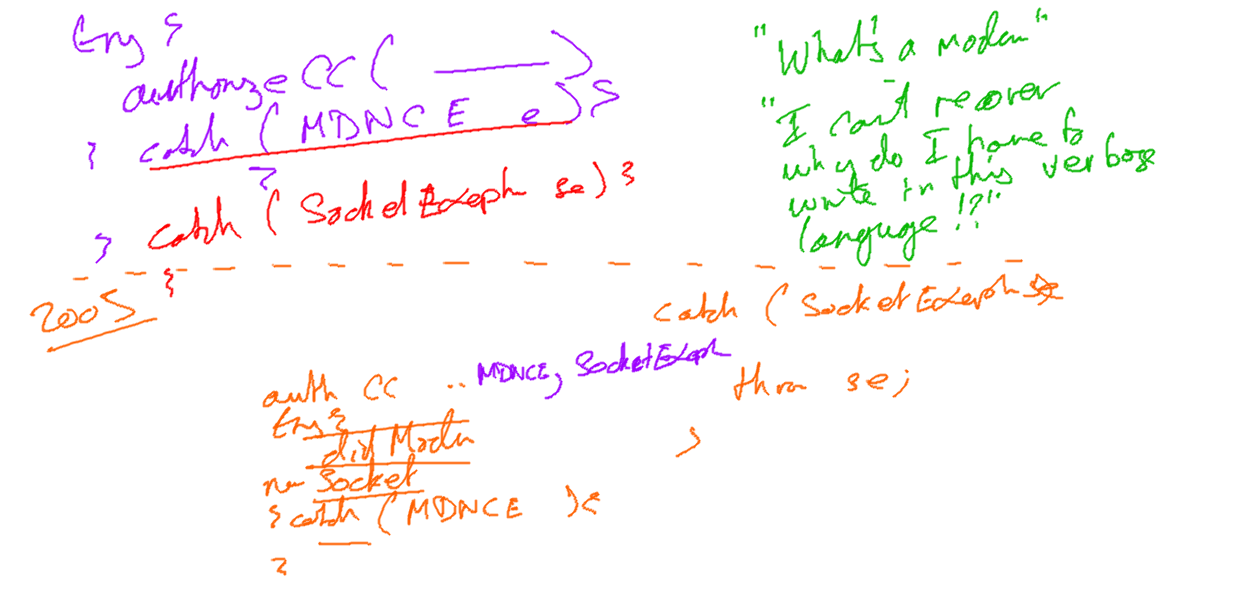 try {
authorize CC ( ——— )
} catch ( MDNCE e ) {
}
catch ( SocketExceph se ) {
}
"What's a modem"
"I can't recover
why do I have to
write in this verbose
language !?"
2005
catch ( SocketExceph se
throw se;
}
auth CC .. MDNCE, SocketExceph
try {
dial Modem
new Socket
} catch ( MDNCE ) {
}